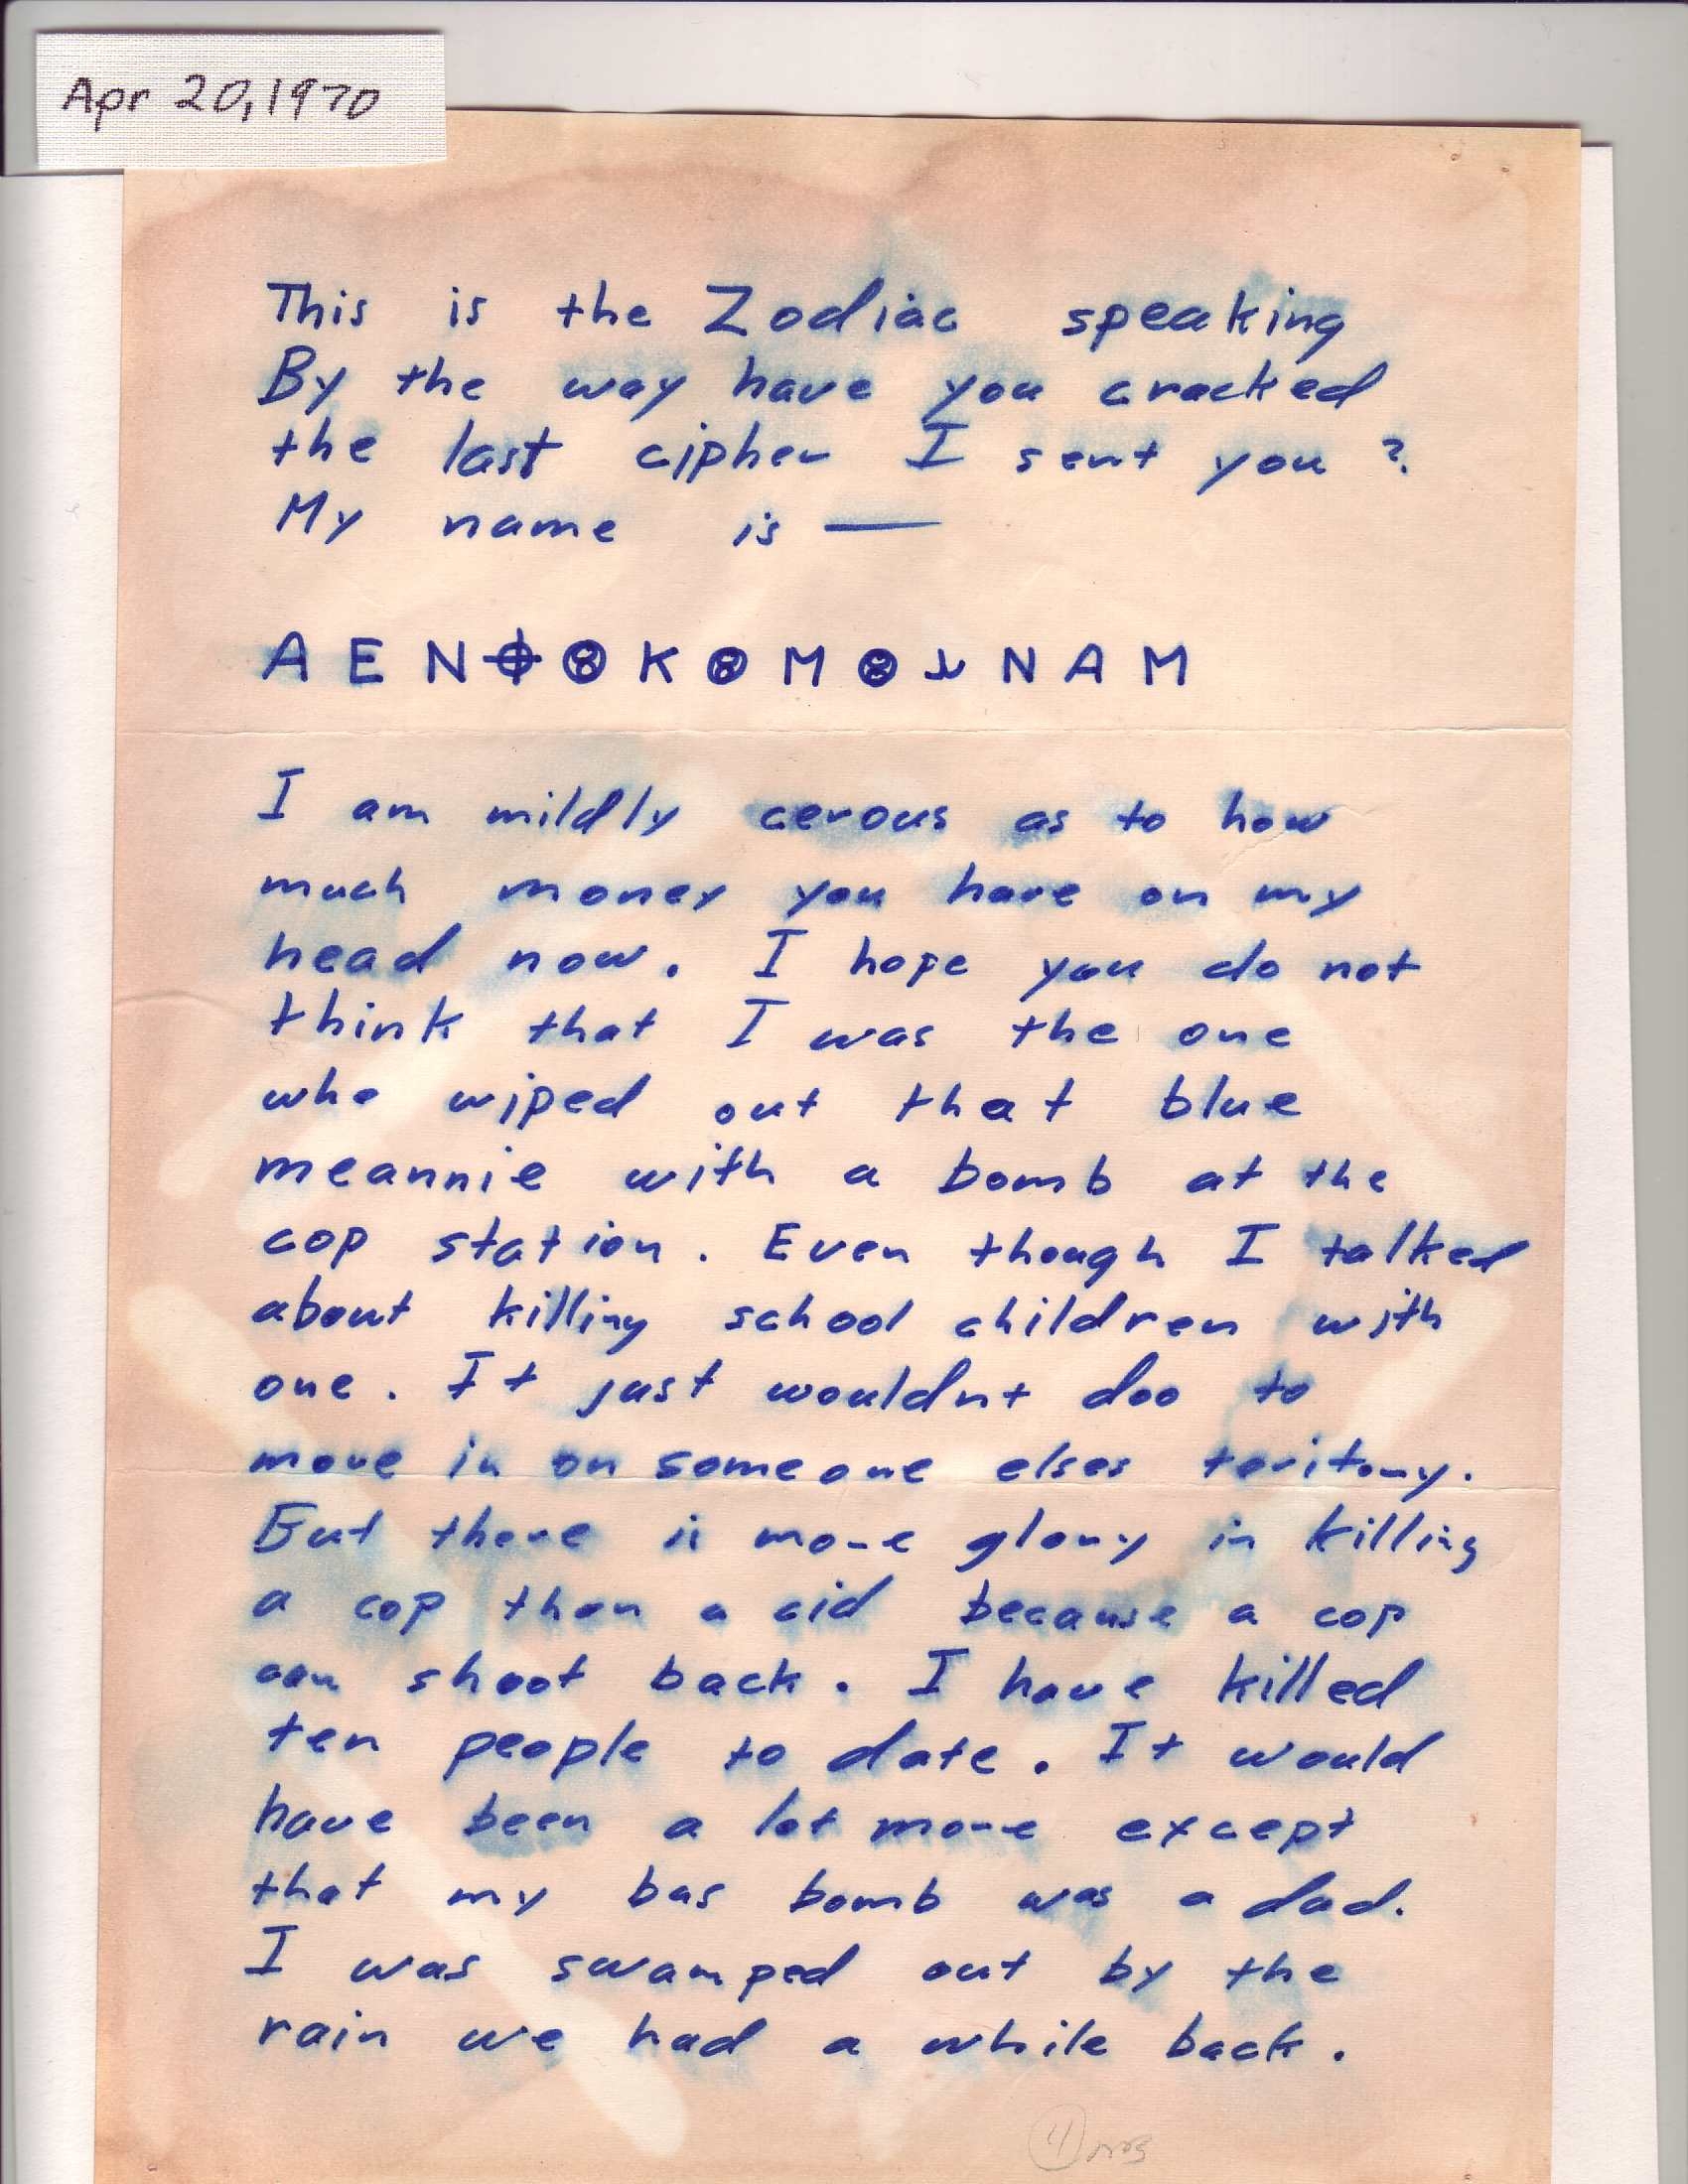 Apr 20, 1970
This is the Zodiac speaking
By the way have you cracked
the last cipher I sent you ?
My name is —
A E N ⌖ ⊗ K ⊗ M ⊗ N A M
I am mildly cerous as to how
much money you have on my
head now. I hope you do not
think that I was the one
who wiped out that blue
meannie with a bomb at the
cop station. Even though I talked
about killing school children with
one. It just wouldnt doo to
move in on someone elses teritory.
But there is more glory in killing
a cop than a cid because a cop
can shoot back. I have killed
ten people to date. It would
have been a lot more except
that my bus bomb was a dud.
I was swamped out by the
rain we had a while back.